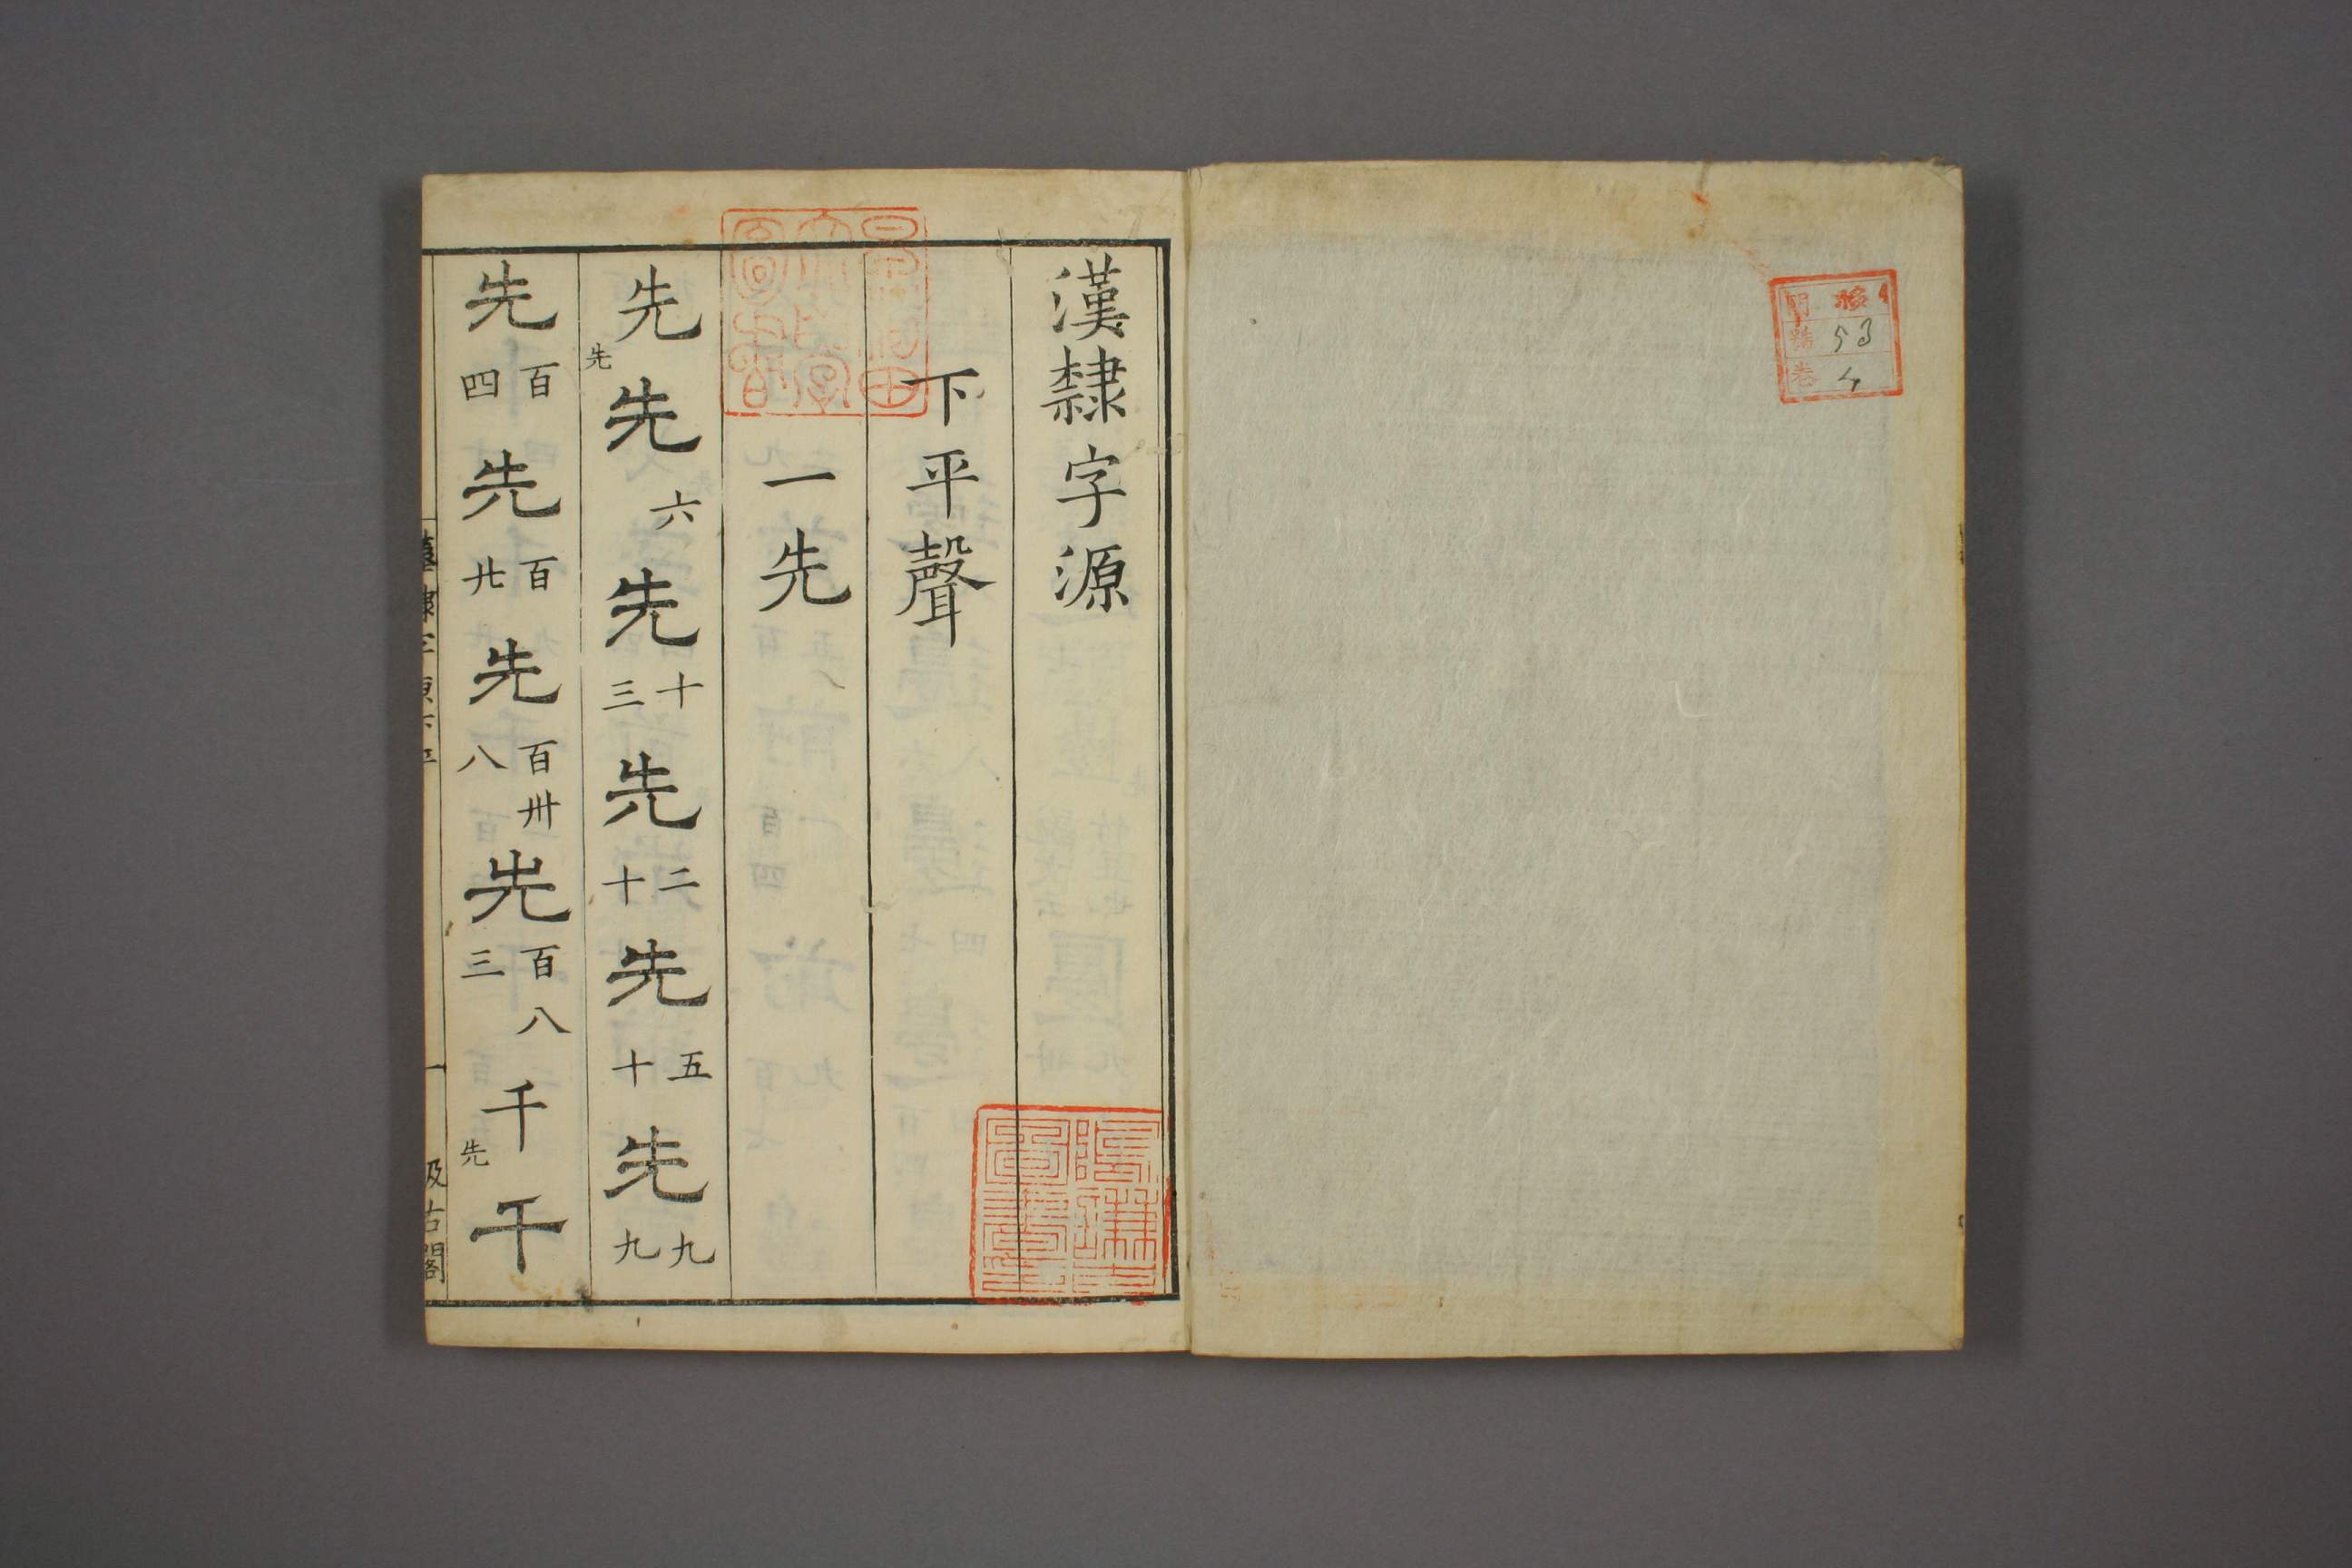 門
號 53
卷 4
漢隸字源
下平聲
一先
先 先 先 六 先 十三 先 二十 先 五十 先 九九
先 百四 先 百廿 先 百卅八 先 百八三 千 先 千
漢隸字源下平 一 汲古閣